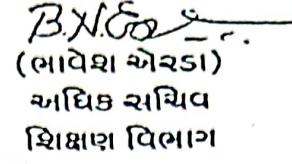 B.N.Er
(ભાવેશ એરડા)
અધિક સચિવ
શિક્ષણ વિભાગ